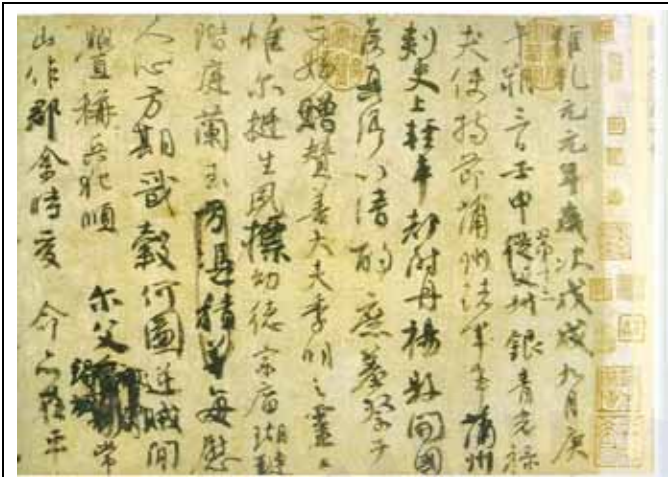 維乾元元年歲次戊戌九月庚
午朔三日壬申第十三從父銀青光祿
夫使持節蒲州諸軍事蒲州
刺史上輕車都尉丹楊縣開國
侯真卿以清酌庶羞祭于
亡姪贈贊善大夫季明之靈曰
惟爾挺生夙標幼德宗廟瑚璉
階庭蘭玉方憑積善每慰
人心方期戩穀何圖逆賊間
釁稱兵犯順 爾父竭誠常
山作郡余時受 命亦在平